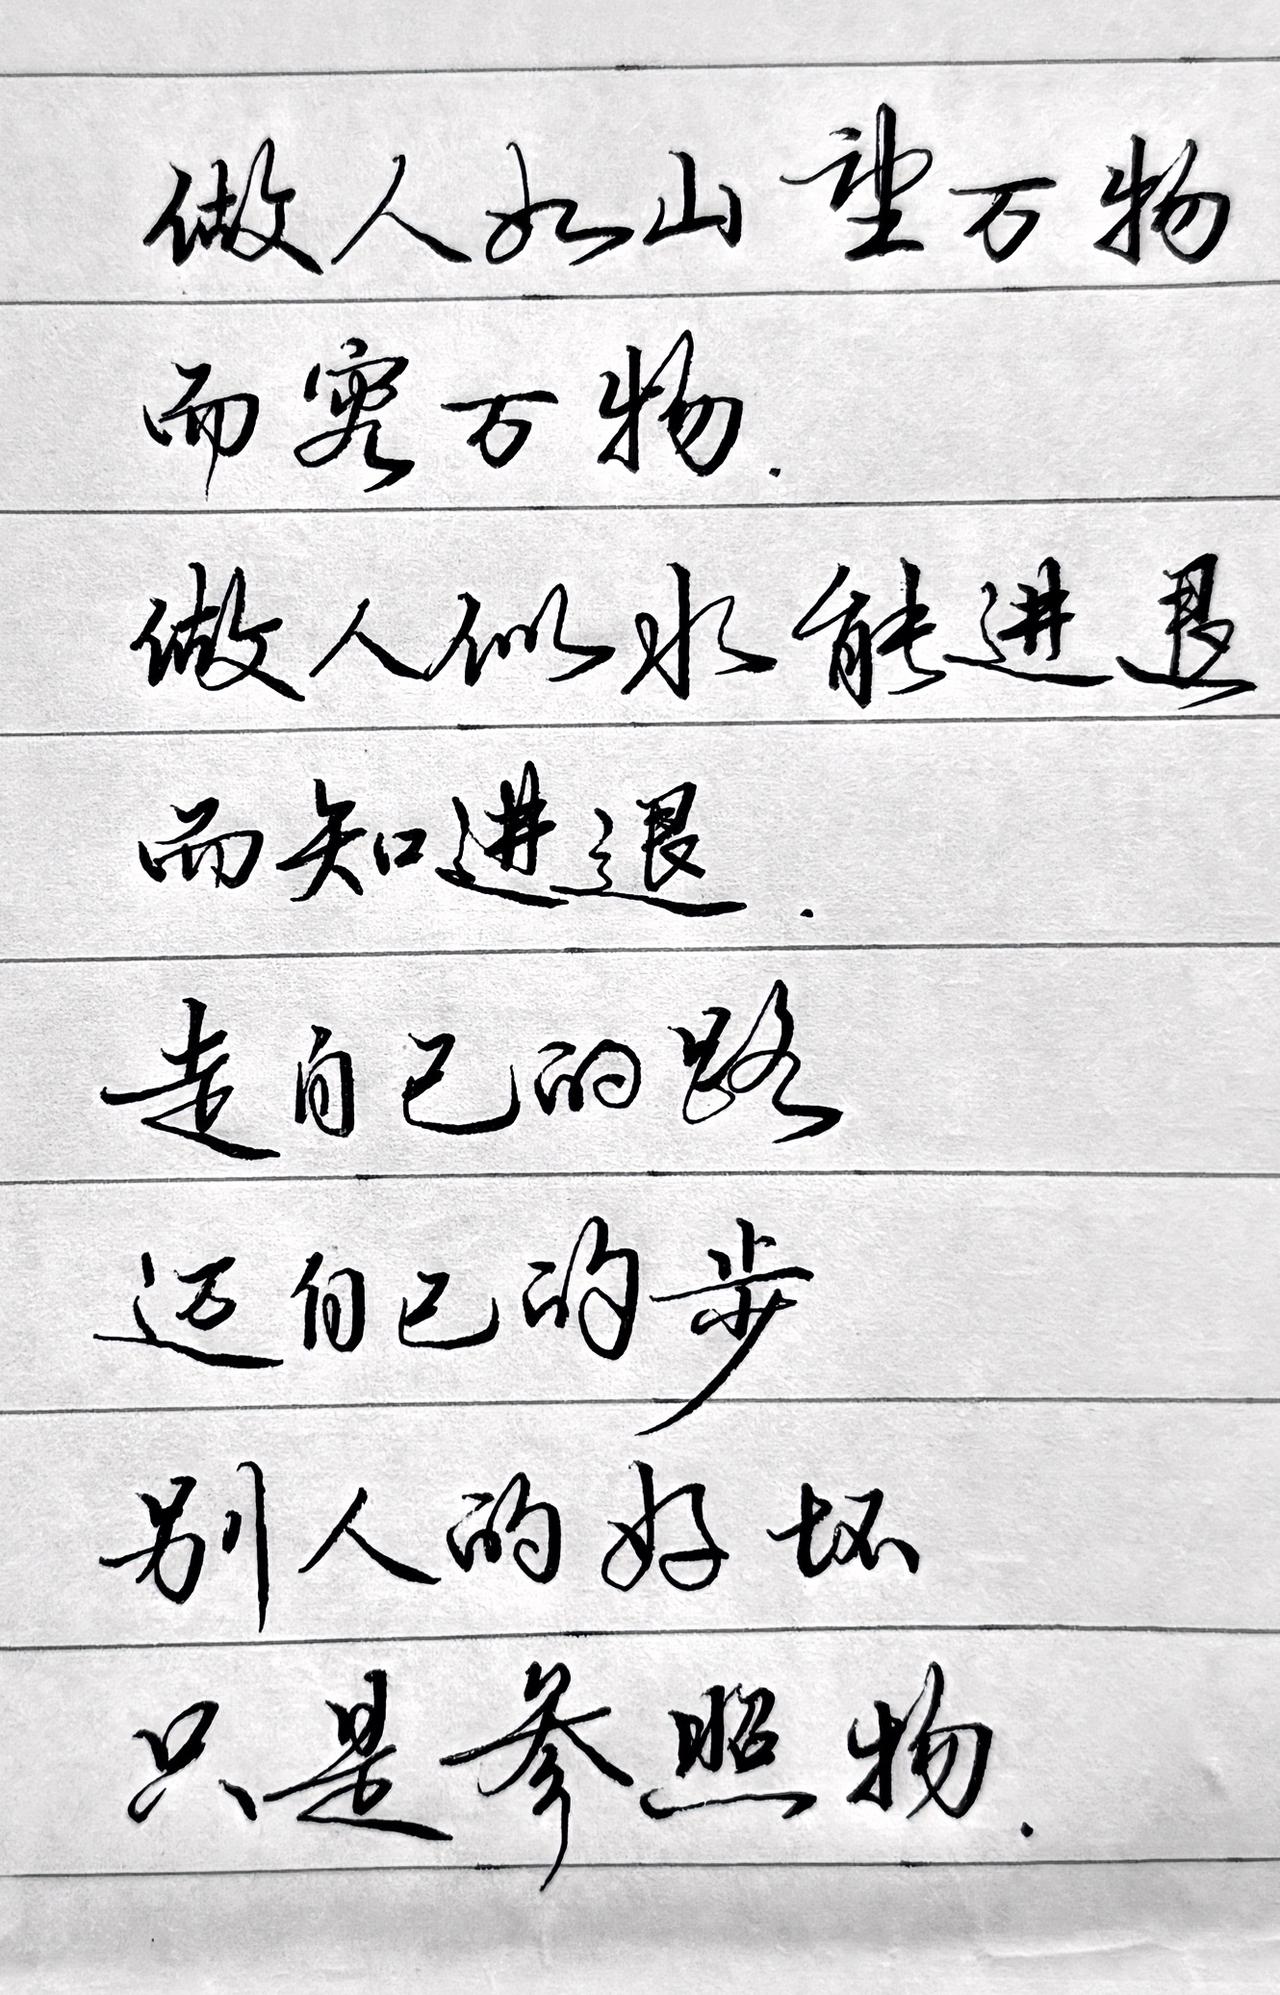 做人如山望万物
而容万物.
做人似水能进退
而知进退.
走自己的路
迈自己的步
别人的好坏
只是参照物.